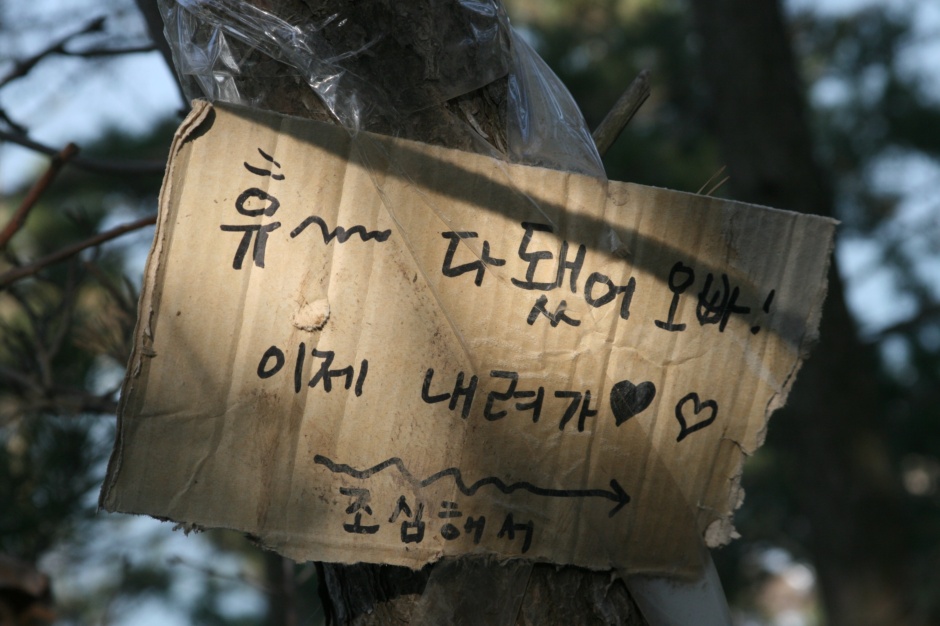 휴~~~ 다됐어 오빠!
이제 내려가♥♡
조심해서